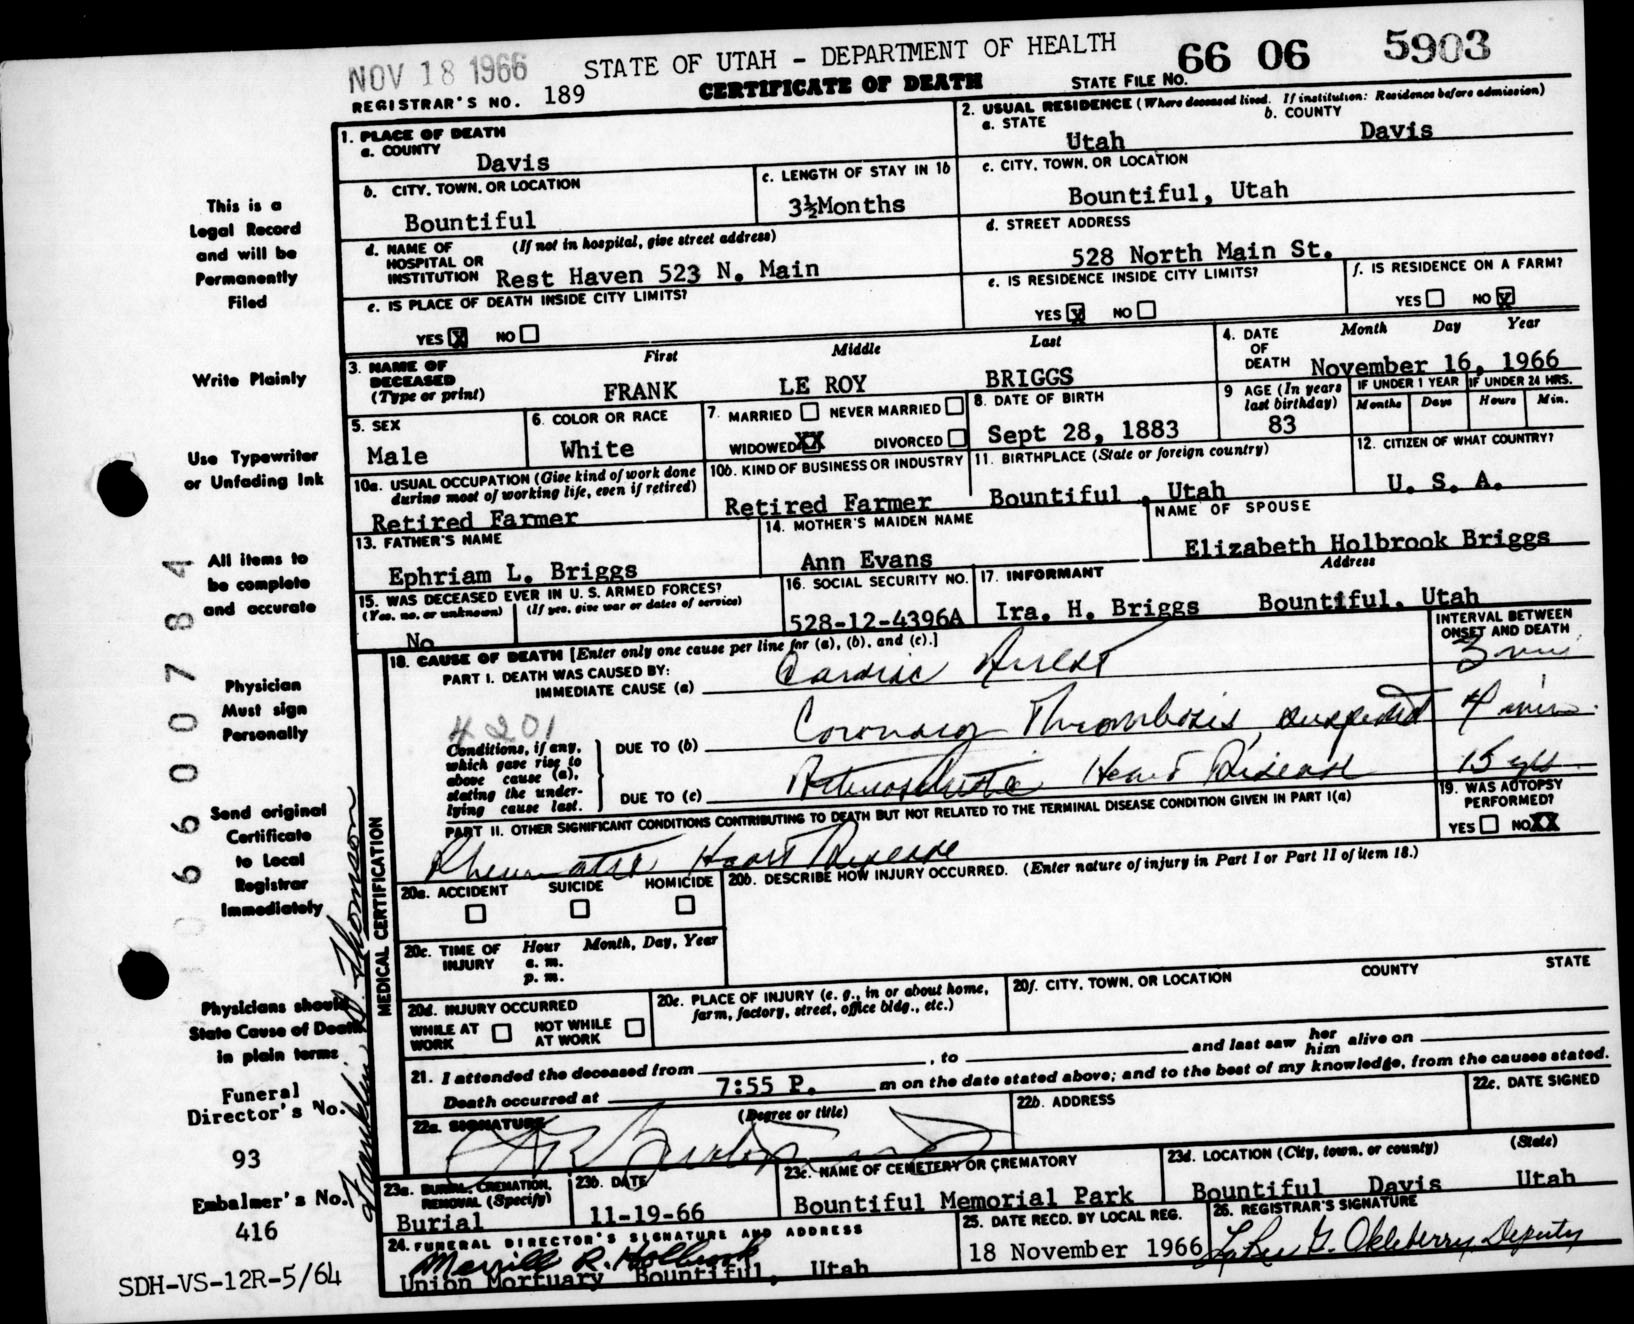 NOV 18 1966 STATE OF UTAH - DEPARTMENT OF HEALTH 66 06 5903
REGISTRAR'S NO. 189 CERTIFICATE OF DEATH STATE FILE NO.
1. PLACE OF DEATH
a. COUNTY
Davis
2. USUAL RESIDENCE (Where deceased lived. If institution: Residence before admission)
a. STATE b. COUNTY
Utah Davis
b. CITY, TOWN, OR LOCATION
Bountiful
c. LENGTH OF STAY IN 1b
3½Months
c. CITY, TOWN, OR LOCATION
Bountiful, Utah
d. NAME OF HOSPITAL OR INSTITUTION (If not in hospital, give street address)
Rest Haven 523 N. Main
d. STREET ADDRESS
528 North Main St.
e. IS PLACE OF DEATH INSIDE CITY LIMITS?
YES X NO
e. IS RESIDENCE INSIDE CITY LIMITS?
YES X NO
f. IS RESIDENCE ON A FARM?
YES NO X
3. NAME OF DECEASED (Type or print)
First Middle Last
FRANK LE ROY BRIGGS
4. DATE OF DEATH
Month Day Year
November 16, 1966
5. SEX
Male
6. COLOR OR RACE
White
7. MARRIED NEVER MARRIED
WIDOWED XX DIVORCED
8. DATE OF BIRTH
Sept 28, 1883
9 AGE (In years last birthday)
83
IF UNDER 1 YEAR IF UNDER 24 HRS.
Months Days Hours Min.
10a. USUAL OCCUPATION (Give kind of work done during most of working life, even if retired)
Retired Farmer
10b. KIND OF BUSINESS OR INDUSTRY
Retired Farmer
11. BIRTHPLACE (State or foreign country)
Bountiful , Utah
12. CITIZEN OF WHAT COUNTRY?
U. S. A.
13. FATHER'S NAME
Ephriam L. Briggs
14. MOTHER'S MAIDEN NAME
Ann Evans
NAME OF SPOUSE
Elizabeth Holbrook Briggs
15. WAS DECEASED EVER IN U. S. ARMED FORCES?
(Yes, no, or unknown) (If yes, give war or dates of service)
No
16. SOCIAL SECURITY NO.
528-12-4396A
17. INFORMANT Address
Ira. H. Briggs Bountiful, Utah
18. CAUSE OF DEATH [Enter only one cause per line for (a), (b), and (c).]
INTERVAL BETWEEN ONSET AND DEATH
PART I. DEATH WAS CAUSED BY:
IMMEDIATE CAUSE (a) Cardiac Arrest 3 min
4201
Conditions, if any, which gave rise to above cause (a), stating the underlying cause last.
DUE TO (b) Coronary Thrombosis, suspected 4 min
DUE TO (c) Arteriosclerotic Heart Disease 15 yrs
PART II. OTHER SIGNIFICANT CONDITIONS CONTRIBUTING TO DEATH BUT NOT RELATED TO THE TERMINAL DISEASE CONDITION GIVEN IN PART I(a)
Rheumatic Heart Disease
19. WAS AUTOPSY PERFORMED?
YES NO XX
20a. ACCIDENT SUICIDE HOMICIDE
20b. DESCRIBE HOW INJURY OCCURRED. (Enter nature of injury in Part I or Part II of item 18.)
20c. TIME OF INJURY Hour Month, Day, Year
a. m.
p. m.
20d. INJURY OCCURRED
WHILE AT WORK NOT WHILE AT WORK
20e. PLACE OF INJURY (e. g., in or about home, farm, factory, street, office bldg., etc.)
20f. CITY, TOWN, OR LOCATION COUNTY STATE
21. I attended the deceased from , to and last saw her him alive on
Death occurred at 7:55 P. m on the date stated above; and to the best of my knowledge, from the causes stated.
22a. SIGNATURE (Degree or title)
22b. ADDRESS
22c. DATE SIGNED
23a. BURIAL, CREMATION, REMOVAL (Specify)
Burial
23b. DATE
11-19-66
23c. NAME OF CEMETERY OR CREMATORY
Bountiful Memorial Park
23d. LOCATION (City, town, or county) (State)
Bountiful Davis Utah
24. FUNERAL DIRECTOR'S SIGNATURE AND ADDRESS
Merrill R. Holbrook
Union Mortuary Bountiful, Utah
25. DATE RECD. BY LOCAL REG.
18 November 1966
26. REGISTRAR'S SIGNATURE
LaRee G. Okleberry Deputy
MEDICAL CERTIFICATION
This is a
Legal Record
and will be
Permanently
Filed
Write Plainly
Use Typewriter
or Unfading Ink
All items to
be complete
and accurate
Physician
Must sign
Personally
Send original
Certificate
to Local
Registrar
Immediately
Physicians should
State Cause of Death
in plain terms
Funeral
Director's No.
93
Embalmer's No.
416
SDH-VS-12R-5/64
Franklin D. Thomson